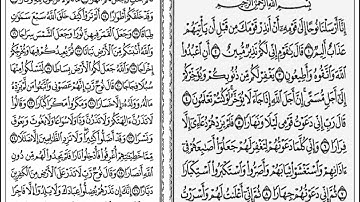 بِسْمِ اللَّهِ الرَّحْمَٰنِ الرَّحِيمِ
إِنَّا أَرْسَلْنَا نُوحًا إِلَىٰ قَوْمِهِ أَنْ أَنذِرْ قَوْمَكَ مِن قَبْلِ أَن يَأْتِيَهُمْ
عَذَابٌ أَلِيمٌ ١ قَالَ يَٰقَوْمِ إِنِّي لَكُمْ نَذِيرٌ مُّبِينٌ ٢ أَنِ اعْبُدُوا
اللَّهَ وَاتَّقُوهُ وَأَطِيعُونِ ٣ يَغْفِرْ لَكُم مِّن ذُنُوبِكُمْ وَيُؤَخِّرْكُمْ
إِلَىٰ أَجَلٍ مُّسَمًّى إِنَّ أَجَلَ اللَّهِ إِذَا جَاءَ لَا يُؤَخَّرُ لَوْ كُنتُمْ تَعْلَمُونَ ٤
قَالَ رَبِّ إِنِّي دَعَوْتُ قَوْمِي لَيْلًا وَنَهَارًا ٥ فَلَمْ يَزِدْهُمْ دُعَاءِي إِلَّا
فِرَارًا ٦ وَإِنِّي كُلَّمَا دَعَوْتُهُمْ لِتَغْفِرَ لَهُمْ جَعَلُوا أَصَٰبِعَهُمْ فِي
ءَاذَانِهِمْ وَاسْتَغْشَوْا ثِيَابَهُمْ وَأَصَرُّوا وَاسْتَكْبَرُوا اسْتِكْبَارًا
٧ ثُمَّ إِنِّي دَعَوْتُهُمْ جِهَارًا ٨ ثُمَّ إِنِّي أَعْلَنتُ لَهُمْ وَأَسْرَرْتُ
وَقَدْ خَلَقَكُمْ أَطْوَارًا ١٤ أَلَمْ تَرَوْا كَيْفَ خَلَقَ اللَّهُ سَبْعَ سَمَٰوَٰتٍ
طِبَاقًا ١٥ وَجَعَلَ الْقَمَرَ فِيهِنَّ نُورًا وَجَعَلَ الشَّمْسَ سِرَاجًا
١٦ وَاللَّهُ أَنبَتَكُم مِّنَ الْأَرْضِ نَبَاتًا ١٧ ثُمَّ يُعِيدُكُمْ فِيهَا وَيُخْرِجُكُمْ
إِخْرَاجًا ١٨ وَاللَّهُ جَعَلَ لَكُمُ الْأَرْضَ بِسَاطًا ١٩ لِّتَسْلُكُوا مِنْهَا
سُبُلًا فِجَاجًا ٢٠ قَالَ نُوحٌ رَّبِّ إِنَّهُمْ عَصَوْنِي وَاتَّبَعُوا مَن لَّمْ يَزِدْهُ
مَالُهُ وَوَلَدُهُ إِلَّا خَسَارًا ٢١ وَمَكَرُوا مَكْرًا كُبَّارًا ٢٢ وَقَالُوا
لَا تَذَرُنَّ ءَالِهَتَكُمْ وَلَا تَذَرُنَّ وَدًّا وَلَا سُوَاعًا وَلَا يَغُوثَ وَيَعُوقَ
وَنَسْرًا ٢٣ وَقَدْ أَضَلُّوا كَثِيرًا وَلَا تَزِدِ الظَّٰلِمِينَ إِلَّا ضَلَٰلًا ٢٤
مِّمَّا خَطِيـَٰٔتِهِمْ أُغْرِقُوا فَأُدْخِلُوا نَارًا فَلَمْ يَجِدُوا لَهُم مِّن دُونِ اللَّهِ
أَنصَارًا ٢٥ وَقَالَ نُوحٌ رَّبِّ لَا تَذَرْ عَلَى الْأَرْضِ مِنَ الْكَٰفِرِينَ
دَيَّارًا ٢٦ إِنَّكَ إِن تَذَرْهُمْ يُضِلُّوا عِبَادَكَ وَلَا يَلِدُوا إِلَّا فَاجِرًا